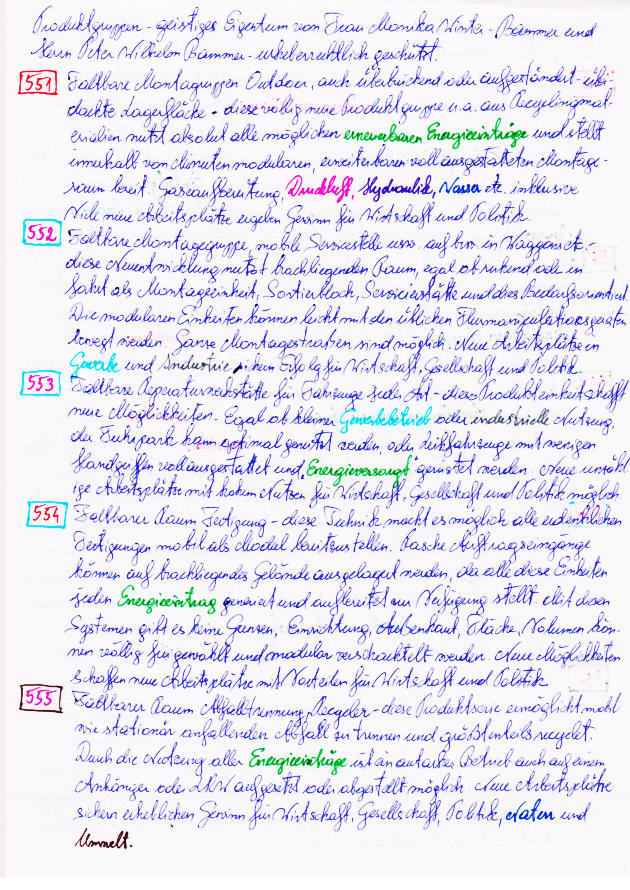 Produktgruppen - geistiges Eigentum von Frau Monika Winter - Bammer und
Herrn Peter Wilhelm Bammer - urheberrechtlich geschützt.
551 Faltbare Montagruppen Outdoor, auch überbrückend oder aufgeständert - über-
dachte Lagerfläche - diese völlig neue Produktgruppe u. a. aus Recyclingmat-
erialien nützt absolut alle möglichen erneuerbaren Energieeinträge und stellt
innerhalb von Minuten modularen, erweiterbaren voll ausgestatteten Montage-
raum bereit. Gaseaufbereitung, Druckluft, Hydraulik, Wasser etc. inklusive
Viele neue Arbeitsplätze ergeben Gewinn für Wirtschaft und Politik.
552 Faltbare Montagegruppe, mobile Servicestelle usw. auf bzw. in Waggons etc. -
diese Neuentwicklung nützt brachliegenden Raum, egal ob ruhend oder in
Fahrt als Montageeinheit, Sortierblock, Servicierstätte und dies Bedarfsorientiert.
Die modularen Einheiten können leicht mit den üblichen Flurmanipulationsgeräten
bewegt werden. Ganze Montagestraßen sind möglich. Neue Arbeitsplätze in
Gewerbe und Industrie, sichern Erfolg für Wirtschaft, Gesellschaft und Politik.
553 Faltbare Reperaturwerkstätte für Fahrzeuge jeder Art - diese Produkteinheit schafft
neue Möglichkeiten. Egal ob kleiner Gewerbebetrieb oder industrielle Nutzung,
der Fuhrpark kann optimal genützt werden, oder Leihfahrzeuge mit wenigen
Handgriffen voll ausgestattet und "Energieversorgt" genützt werden. Neue unzähl-
ige Arbeitsplätze mit hohem Nutzen für Wirtschaft, Gesellschaft und Politik möglich.
554 Faltbarer Raum Fertigung - diese Technik macht es möglich alle erdenklichen
Fertigungen mobil als Model bereitzustellen. Rasche Auftragseingänge
können auf brachliegendes Gelände ausgelagert werden, da alle diese Einheiten
jeden Energieeintrag generiert und aufbereitet zur Verfügung stellt. Mit diesen
Systemen gibt es keine Grenzen, Einrichtung, Außenhaut, Fläche, Volumen, kön-
nen völlig frei gewählt und modular verschachtelt werden. Neue Möglichkeiten
schaffen neue Arbeitsplätze mit Vorteilen für Wirtschaft und Politik
555 Faltbarer Raum Abfalltrennung, Recycler - diese Produktserie ermöglicht mobil
wie stationär anfallenden Abfall zu trennen und größtenteils recyclet.
Durch die Nutzung aller Energieeinträge ist ein autarker Betrieb auch auf einem
Anhänger oder LKW aufgesetzt oder abgestellt möglich. Neue Arbeitsplätze
sichern erheblichen Gewinn für Wirtschaft, Gesellschaft, Politik, Natur und
Umwelt.